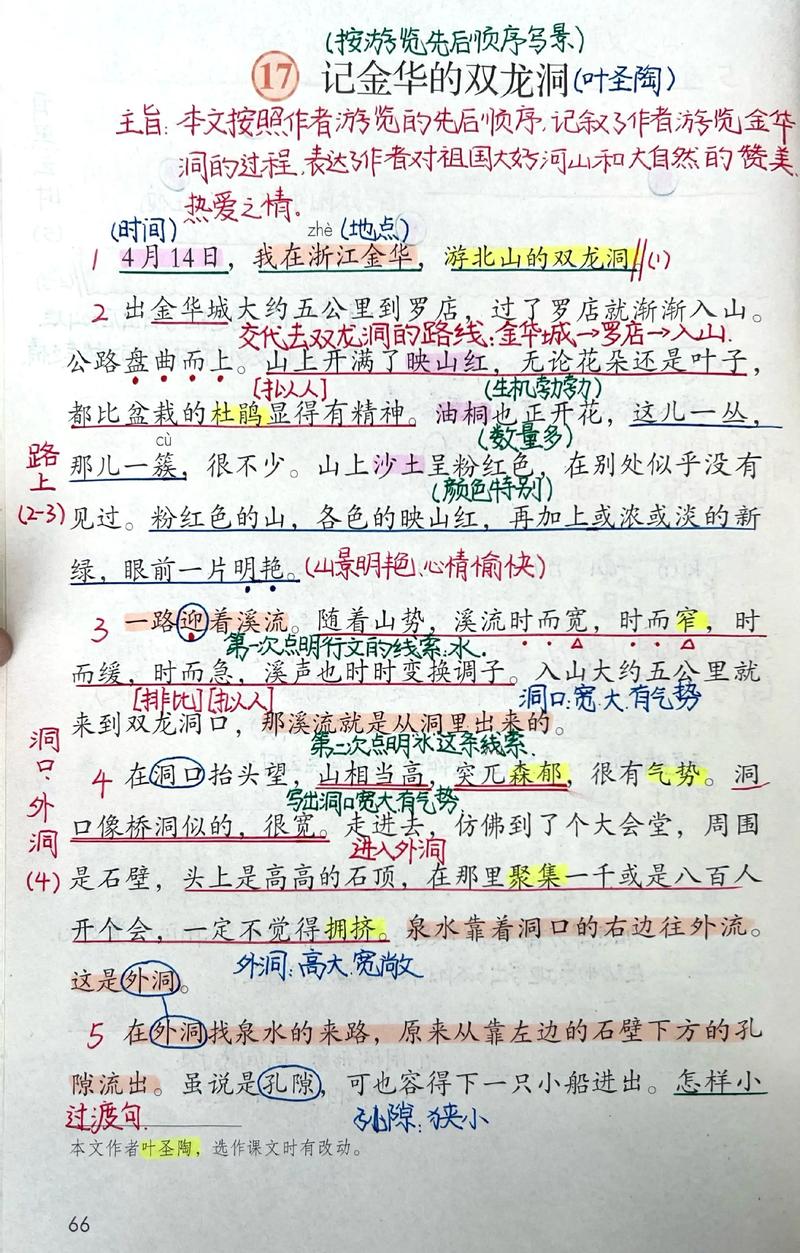 (按游览先后顺序写景)
17 记金华的双龙洞(叶圣陶)
主旨:本文按照作者游览的先后顺序,记叙了作者游览金华
洞的过程,表达了作者对祖国大好河山和大自然的赞美、
热爱之情。
(时间) zhè (地点)
1 4月14日,我在浙江金华,游北山的双龙洞。(1)
2 出金华城大约五公里到罗店,过了罗店就渐渐入山。
交代去双龙洞的路线:金华城→罗店→入山.
公路盘曲而上。山上开满了映山红,无论花朵还是叶子,
[拟人] (生机勃勃)
都比盆栽的杜鹃显得有精神。油桐也正开花,这儿一丛,
cù (数量多)
路上(2-3)
那儿一簇,很不少。山上沙土呈粉红色,在别处似乎没有
(颜色特别)
见过。粉红色的山,各色的映山红,再加上或浓或淡的新
绿,眼前一片明艳。(山景明艳、心情愉快)
3 一路迎着溪流。随着山势,溪流时而宽,时而窄,时
第一次点明行文的线索:水.
而缓,时而急,溪声也时时变换调子。入山大约五公里就
[排比][拟人] 洞口:宽、大、有气势
来到双龙洞口,那溪流就是从洞里出来的。
第二次点明水这条线索.
洞口、外洞(4)
4 在洞口抬头望,山相当高,突兀森郁,很有气势。洞
写出洞口宽大有气势
口像桥洞似的,很宽。走进去,仿佛到了个大会堂,周围
进入外洞
是石壁,头上是高高的石顶,在那里聚集一千或是八百人
开个会,一定不觉得拥挤。泉水靠着洞口的右边往外流。
外洞:高大、宽敞
这是外洞。
5 在外洞找泉水的来路,原来从靠左边的石壁下方的孔
隙流出。虽说是孔隙,可也容得下一只小船进出。怎样小
过渡句. 孔隙:狭小
本文作者叶圣陶,选作课文时有改动。
66